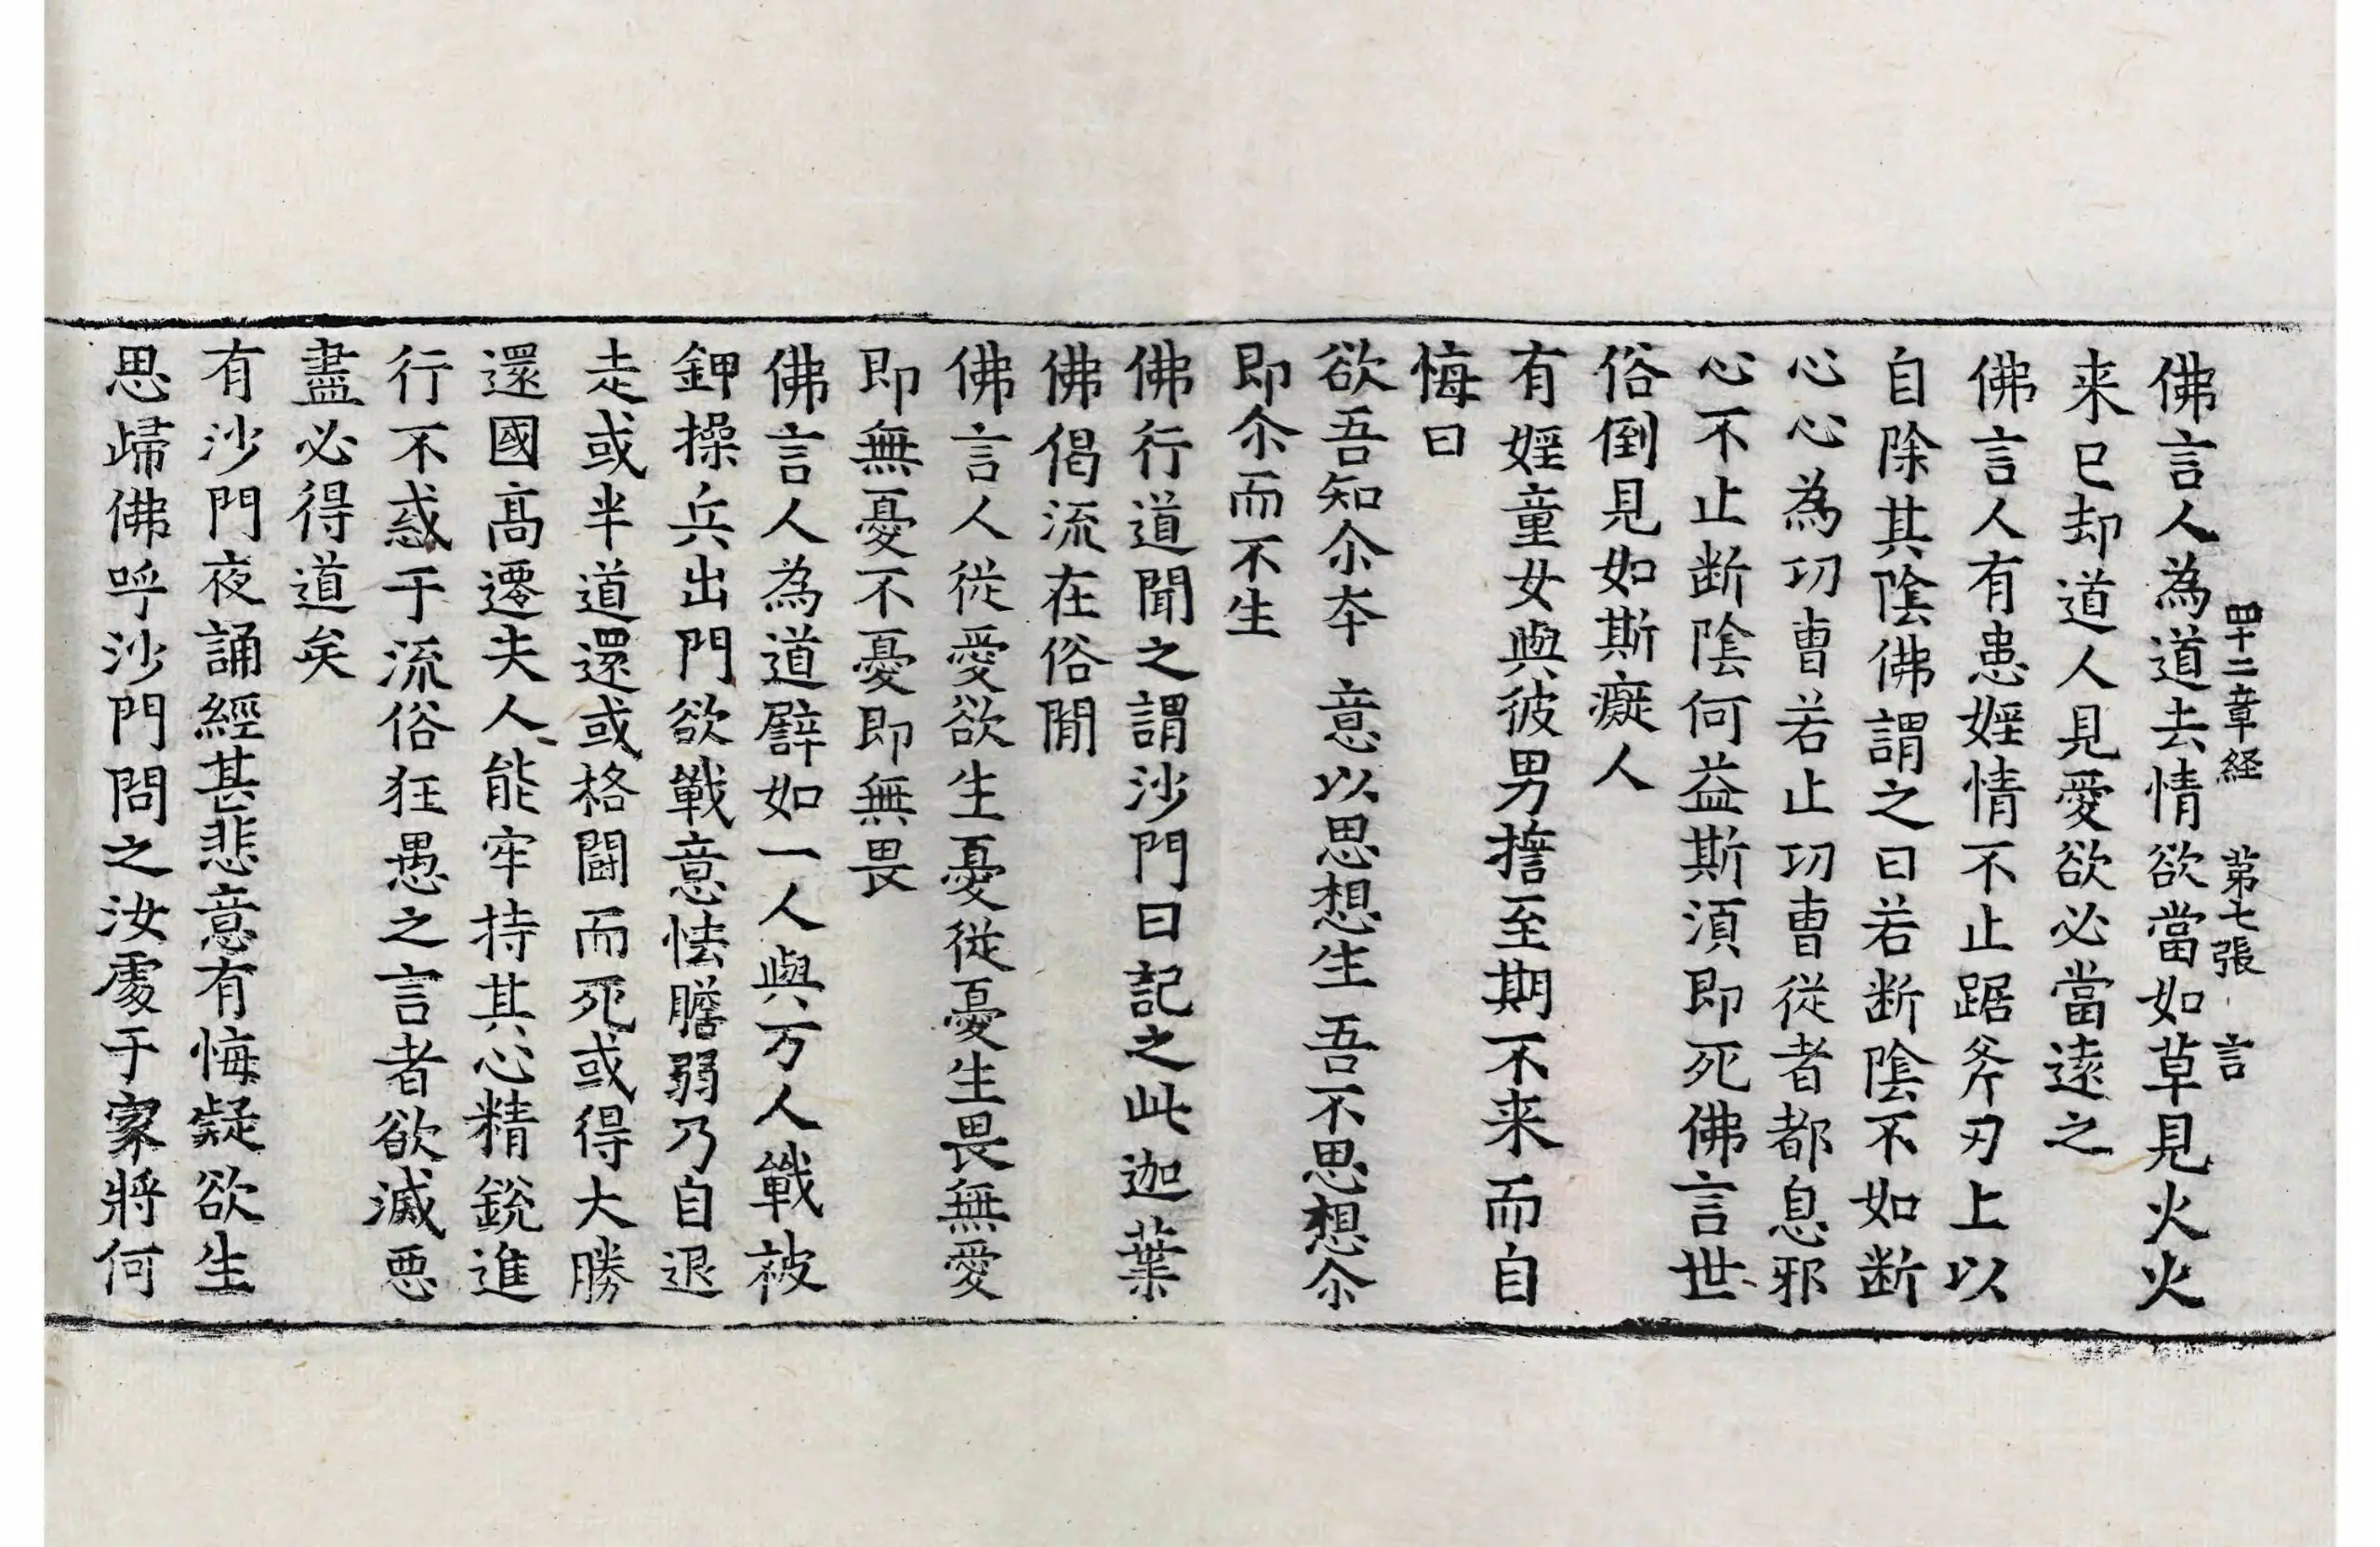 四十二章経 第七張 言
佛言人為道去情欲當如草見火火
来已却道人見愛欲必當遠之
佛言人有患婬情不止踞斧刃上以
自除其陰佛謂之曰若断陰不如断
心心為功曺若止功曺從者都息邪
心不止断陰何益斯湏即死佛言世
俗倒見如斯癡人
有婬童女與彼男擔至期不来而自
悔曰
欲吾知尒夲 意以思想生 吾不思想尒
即尒而不生
佛行道聞之謂沙門曰記之此迦葉
佛偈流在俗閒
佛言人從愛欲生憂從憂生畏無愛
即無憂不憂即無畏
佛言人為道譬如一人與万人戰被
鉀操兵出門欲戰意怯膽弱乃自退
走或半道還或格鬪而死或得大勝
還國髙遷夫人能牢持其心精銳進
行不惑于流俗狂愚之言者欲滅惡
盡必得道矣
有沙門夜誦經甚悲意有悔疑欲生
思歸佛呼沙門問之汝處于家將何